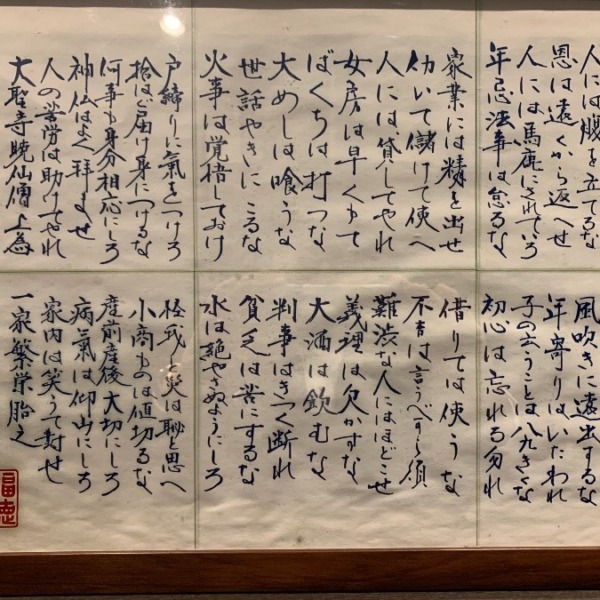 人には腹を立てるな
風吹きに遠出するな
恩は遠くから返へせ
年寄りはいたわれ
人には馬鹿にされていろ
子の云うことは八九きくな
年忌法事は怠るな
初心は忘れる勿れ
家業には精を出せ
借りては使うな
働いて儲けて使へ
不吉は言うべからず
人には貸してやれ
難渋な人にはほどこせ
女房は早くもて
義理は欠かすな
ばくちは打つな
大酒は飲むな
大めしは喰うな
判事はきつく断れ
世話やきにこるな
貧乏は苦にするな
火事は覚悟しておけ
水は絶やさぬようにしろ
戸締りに氣をつけろ
怪我と災は恥と思へ
拾はば届け身につけるな
小商ものは値切るな
何事も身分相応にしろ
産前産後大切にしろ
神仏はよく拝ませ
病氣は仰山にしろ
人の苦労は助けてやれ
家内は笑うて
大聖寺暁仙僧上為
一家繁栄貽之